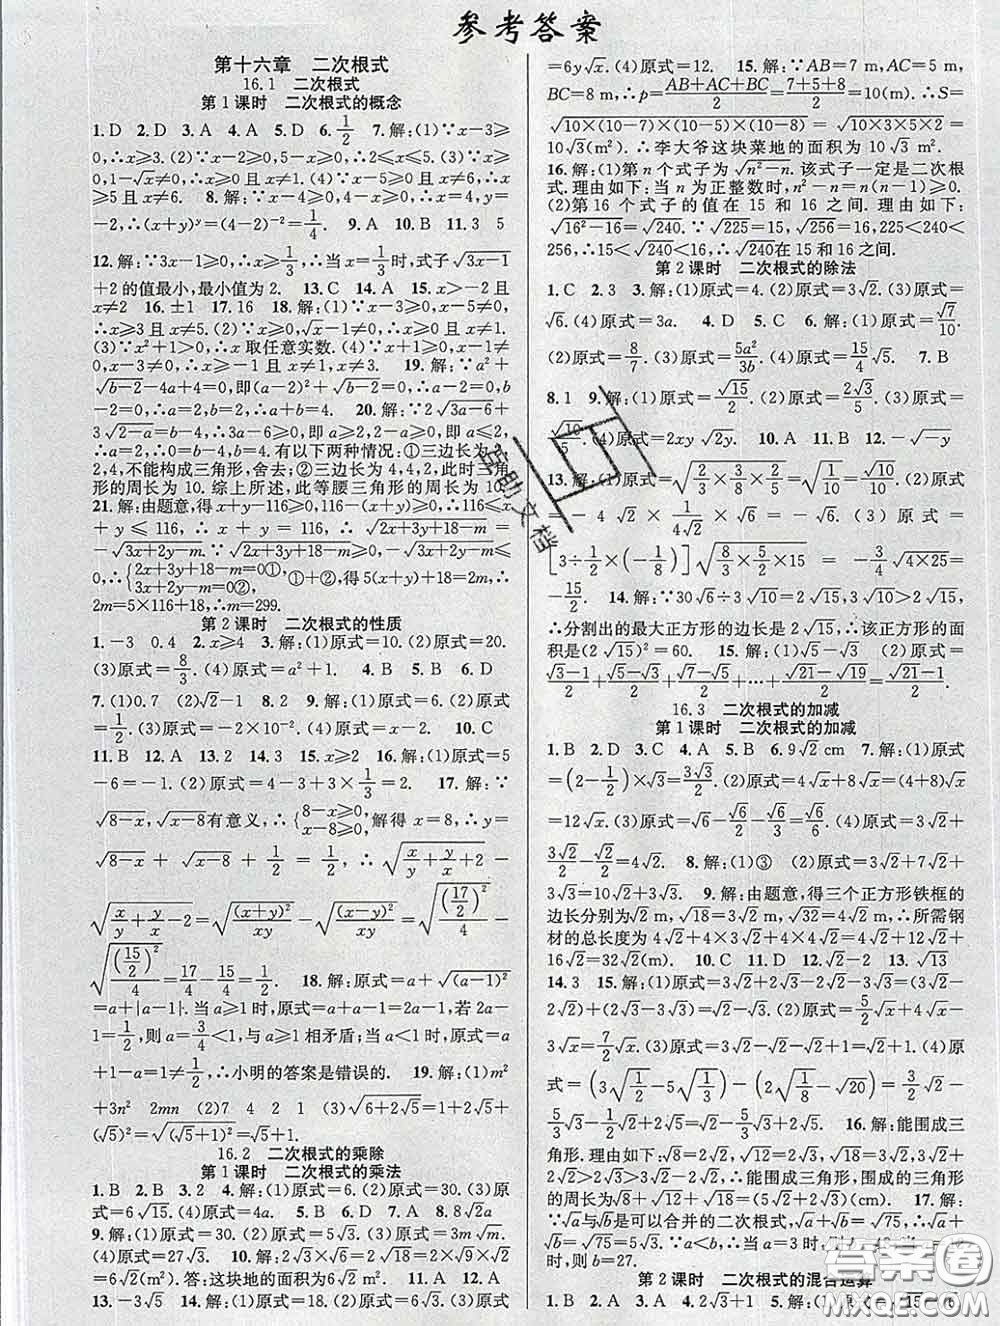 参考答案
第十六章 二次根式
16.1 二次根式
第1课时 二次根式的概念
1.D 2.D 3.A 4.A 5.D 6.1/2 7.解:(1)∵x-3≥
0,∴x≥3.(2)∵x-2≥0,∴x≥2.(3)∵x≥0,
1-√x≠0,∴x≥0且x≠1.(4)∵x-5≥0,x-6≠0,∴x
≥5且x≠6. 8.解:∵x-4≥0,4-x≥0,∴x=4,y=
-2,∴(x+y)^y=(4-2)^-2=1/4. 9.A 10.B 11.3 5
12.解:∵3x-1≥0,∴x≥1/3,∴当x=1/3时,式子√(3x-1)
+2的值最小,最小值为2. 13.C 14.A 15.x>-2且
x≠2 16.±1 17.16 18.解:(1)∵x-3≥0,x-5≠0,
∴x≥3且x≠5.(2)∵x≥0,√x-1≠0,∴x≥0且x≠1.
(3)∵x²+1>0,∴x取任意实数.(4)∵x+1≥0,x-1≠
0,x-3≠0,∴x≥-1,x≠1,x≠3. 19.解:∵a²+
√(b-2)-4a+4=0,即(a-2)²+√(b-2)=0,∴a-2=0,b-
2=0,∴a=2,b=2,∴ab=4. 20.解:∵2√(3a-6)+
3√(2-a)=b-4,∴3a-6≥0,即a≥2,2-a≥0,即a≤2,
∴a=2,b-4=0,∴b=4.有以下两种情况:①三边长为4,
2,2,不能构成三角形,舍去;②三边长为4,4,2,此时三角
形的周长为10.综上所述,此等腰三角形的周长为10
21.解:由题意,得x+y-116≥0,116-(x+y)≥0,∴116≤x
+y≤116,∴x+y=116,∴√(2x+3y+18-m)=
-√(3x+2y-m),∴√(2x+3y+18-m)≥0,-√(3x+2y-m)≤0,
∴{2x+3y+18-m=0①, 3x+2y-m=0②, ①+②,得5(x+y)+18=2m,∴
2m=5×116+18,∴m=299.
第2课时 二次根式的性质
1.-3 0.4 2.x≥4 3.解:(1)原式=10.(2)原式=20.
(3)原式=8/3.(4)原式=a²+1. 4.B 5.B 6.D
7.(1)0.7 (2)√2-1 8.2 9.解:(1)原式=6.(2)原式
=1/2.(3)原式=-2×10^-2.(4)原式=x-2. 10.C
11.B 12.A 13.2 14.3 15.x≥2 16.解:(1)原式=5
-6=-1.(2)原式=1/2+3×1/3×1/2=2. 17.解:∵
√(8-x),√(x-8)有意义,∴{8-x≥0, x-8≥0, 解得x=8,∴y=
√(8-x)+√(x-8)+1/2=1/2,∴√(x/y+y/x+2)-
√(x/y+y/x-2)=√((x+y)²/xy)-√((x-y)²/xy)=√((17/2)²/4)-
√((15/2)²/4)=17/4-15/4=1/2. 18.解:原式=a+√((a-1)²)
=a+|a-1|.当a≥1时,原式=a+a-1=2a-1=
1/2,则a=3/4<1,与a≥1相矛盾;当a<1时,原式=a-a
+1=1≠1/2,∴小明的答案是错误的. 19.解:(1)m²+
3n² 2mn (2)7 4 2 1 (3)√(6+2√5)=√(1+2√5+
(√5)²)=√((√5+1)²)=√5+1.
16.2 二次根式的乘除
第1课时 二次根式的乘法
1.B 2.B 3.2 4.解:(1)原式=6.(2)原式=30.(3)原
式=6√15.(4)原式=4a. 5.D 6.A 7.D 8.8√2a
9.解:(1)原式=6√2.(2)原式=5√3.(3)原式=3m√m.
(4)原式=27√3. 10.解:√6×2√3=2√18=2×√9×√2
=6√2(m²).答:这块地的面积为6√2 m². 11.A 12.A
13.-3√5 14.解:(1)原式=18.(2)原式=6√3.(3)原式
=6y√x.(4)原式=12. 15.解:∵AB=7 m,AC=5 m,
BC=8 m,∴p=(AB+AC+BC)/2=(7+5+8)/2=10(m).∴S=
√(10×(10-7)×(10-5)×(10-8))=√(10×3×5×2)=
10√3(m²).∴李大爷这块菜地的面积为10√3 m².
16.解:(1)第n个式子为√(n²-n).该式子一定是二次根
式.理由如下:当n为正整数时,n²-n=n(n-1)≥0.
(2)第16个式子的值在15和16之间.理由如下:
√(16²-16)=√240.∵√225=15,√256=16,225<240<
256,∴15<√240<16,∴√240在15和16之间.
第2课时 二次根式的除法
1.C 2.3 3.解:(1)原式=4.(2)原式=3√2.(3)原式=
√6.(4)原式=3a. 4.D 5.C 6.解:(1)原式=√7/10.
(2)原式=8/7.(3)原式=5a²/3b.(4)原式=15/4√5. 7.B
8.1 9.解:(1)原式=√15/2.(2)原式=2√3/5.(3)原式=
√10/5.(4)原式=2xy√2y. 10.A 11.A 12.-√-y
13.解:(1)原式=√(2/3×3/8×2/5)=√(1/10)=√10/10.(2)原式
=-4√2×1/(4√2)×√6=-√6.(3)原式=
[3÷1/2×(-1/8)]√(8/3×5/2×15)=-3/4×√(4×25)=
-15/2. 14.解:∵30√6÷3√10=10√(3/5)=2√15,
∴分割出的最大正方形的边长是2√15,∴该正方形的面
积是(2√15)²=60. 15.解:(1)√5-√3 (2)原式=
(√3-1)/2+(√5-√3)/2+(√7-√5)/2+…+(√21-√19)/2=(√21-1)/2.
16.3 二次根式的加减
第1课时 二次根式的加减
1.B 2.D 3.C 4.A 5.B 6.9√2 cm 7.解:(1)原式
=(2-1/2)×√3=3√3/2.(2)原式=4√x+8√x=(4+8)√x
=12√x.(3)原式=√6-√6/2-√6/3=√6/6.(4)原式=
3√2/2-√2/2=√2. 8.解:(1)③ (2)原式=3√2+7√2+
3√3=10√2+3√3. 9.解:由题意,得三个正方形铁框的
边长分别为√2 m,√18=3√2 m,√32=4√2 m,∴所需钢
材的总长度为4√2+4×3√2+4×4√2=4√2+12√2+
16√2=32√2(m). 10.A 11.D 12.-√2 13.√13
14.3 15.解:(1)原式=(2√3-√2)-(√3-√2)=√3.
(2)原式=(2√3-3√3)+(√2+4√2)=5√2-√3.(3)原
式=7/2√x.(4)原式
式=(3√(1/3)-5√(1/3))-(2√(1/8)-√20)=3/2√2-
16.解:能围成三
角形.理由:∵√8=2√2,√12=2√3,√18=3√2,2√2+
2√3>3√2,∴能围成三角形,围成的三角形
的周长为√8+√12+√18=(5√2+2√3)(cm). 17.解:
∵√a与√b是可以合并的二次根式,√a+√b=√75,∴√a+
√b=√75=5√3.∵a<b,∴当a=3时,则b=48;当a=12
时,则b=27.
第2课时 二次根式的混合运算
1.B 2.B 3.D 4.2√3+1 5.解:(1)原式=√15-6
互助文档
答案圈